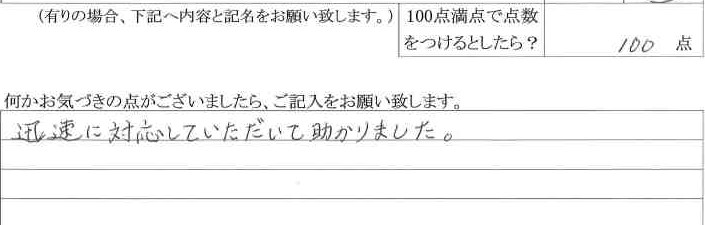 （有りの場合、下記へ内容と記名をお願い致します。）
100点満点で点数
をつけるとしたら？
100 点
何かお気づきの点がございましたら、ご記入をお願い致します。
迅速に対応していただいて助かりました。